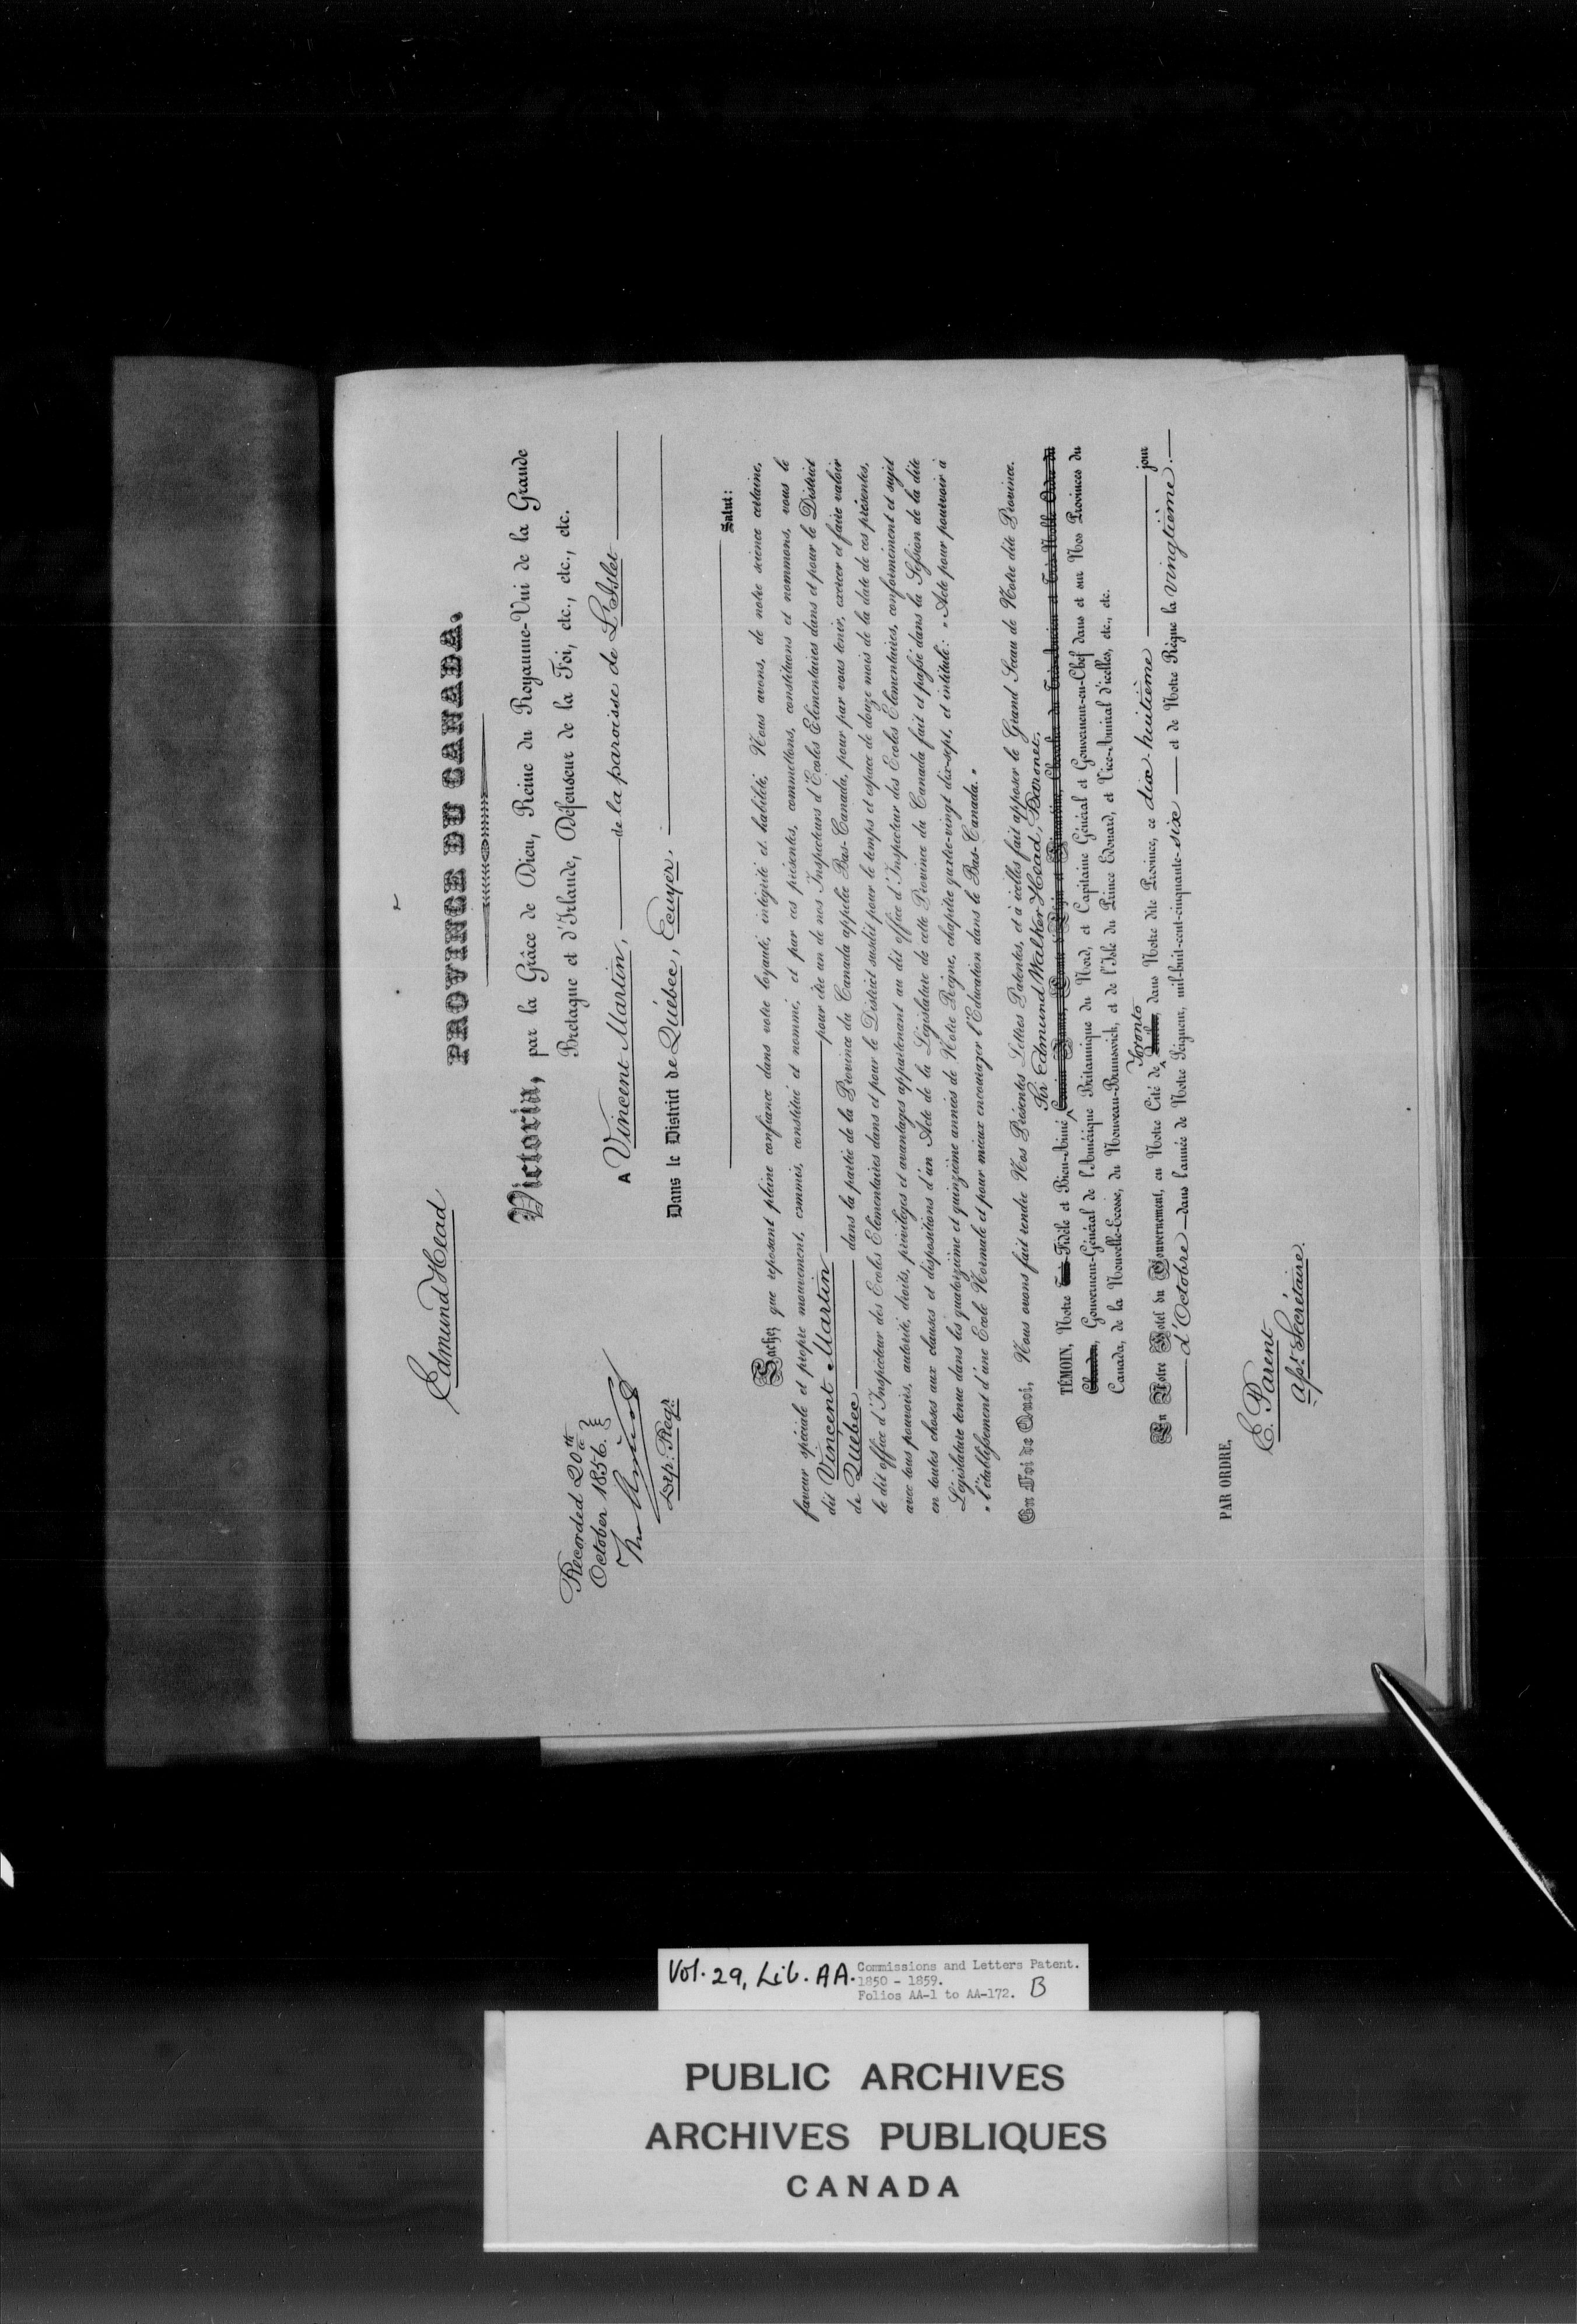 Edmund Head
PROVINCE DU CANADA.
Recorded 20th
October 1856.
Dep: Regr
Victoria, par la Grâce de Dieu, Reine du Royaume-Uni de la Grande
Bretagne et d'Irlande, Défenseur de la Foi, etc., etc., etc.
A Vincent Martin, de la paroisse de L'Islet
Dans le District de Québec, Ecuyer.
Salut:
Sachez que reposant pleine confiance dans votre loyauté, intégrité et habilité, Nous avons, de notre science certaine,
faveur spéciale et propre mouvement, commis, constitué et nommé, et par ces présentes, commettons, constituons et nommons, vous le
dit Vincent Martin pour être un de nos Inspecteurs d'Ecoles Elémentaires dans et pour le District
de Québec dans la partie de la Province du Canada appelée Bas-Canada, pour par vous tenir, exercer et faire valoir
le dit office d'Inspecteur des Ecoles Elémentaires dans et pour le District susdit pour le temps et espace de douze mois de la date de ces présentes,
avec tous pouvoirs, autorité, droits, privilèges et avantages appartenant au dit office d'Inspecteur des Ecoles Elémentaires, conformément et sujet
en toutes choses aux clauses et dispositions d'un Acte de la Législature de cette Province du Canada fait et passé dans la Session de la dite
Législature tenue dans les quatorzième et quinzième années de Notre Règne, chapitre quatre-vingt dix-sept, et intitulé: "Acte pour pourvoir à
"l'établissement d'une Ecole Normale et pour mieux encourager l'Education dans le Bas-Canada."
En Foi de Quoi, Nous avons fait rendre Nos Présentes Lettres Patentes, et à icelles fait apposer le Grand Sceau de Notre dite Province.
Sir Edmund Walker Head, Baronet.
TÉMOIN, Notre Très-Fidèle et Bien-Aimé
Chardon, Gouverneur-Général de l'Amérique Britannique du Nord, et Capitaine Général et Gouverneur-en-Chef dans et sur Nos Provinces du
Canada, de la Nouvelle-Ecosse, du Nouveau-Brunswick, et de l'Isle du Prince Edouard, et Vice-Amiral d'icelles, etc., etc.
Toronto
En Notre Hotel du Gouvernement, en Notre Cité de Québec, dans Notre dite Province, ce dix-huitième jour
d'Octobre dans l'année de Notre Seigneur, mil-huit-cent-cinquante-six et de Notre Règne la vingtième.
PAR ORDRE,
E. Parent
Asst. Secrétaire.
Vol. 29, Lib. AA. Commissions and Letters Patent.
1850 - 1859.
Folios AA-1 to AA-172. B
PUBLIC ARCHIVES
ARCHIVES PUBLIQUES
CANADA